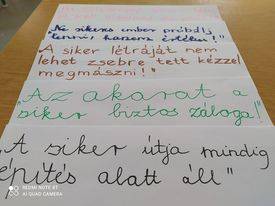 „Ne sikeres ember próbálj
lenni, hanem értékes!"
„A siker létráját nem
lehet zsebre tett kézzel
megmászni!"
„Az akarat a
siker biztos záloga!"
„A siker útja mindig
építés alatt áll"
REDMI NOTE 8T
AI QUAD CAMERA